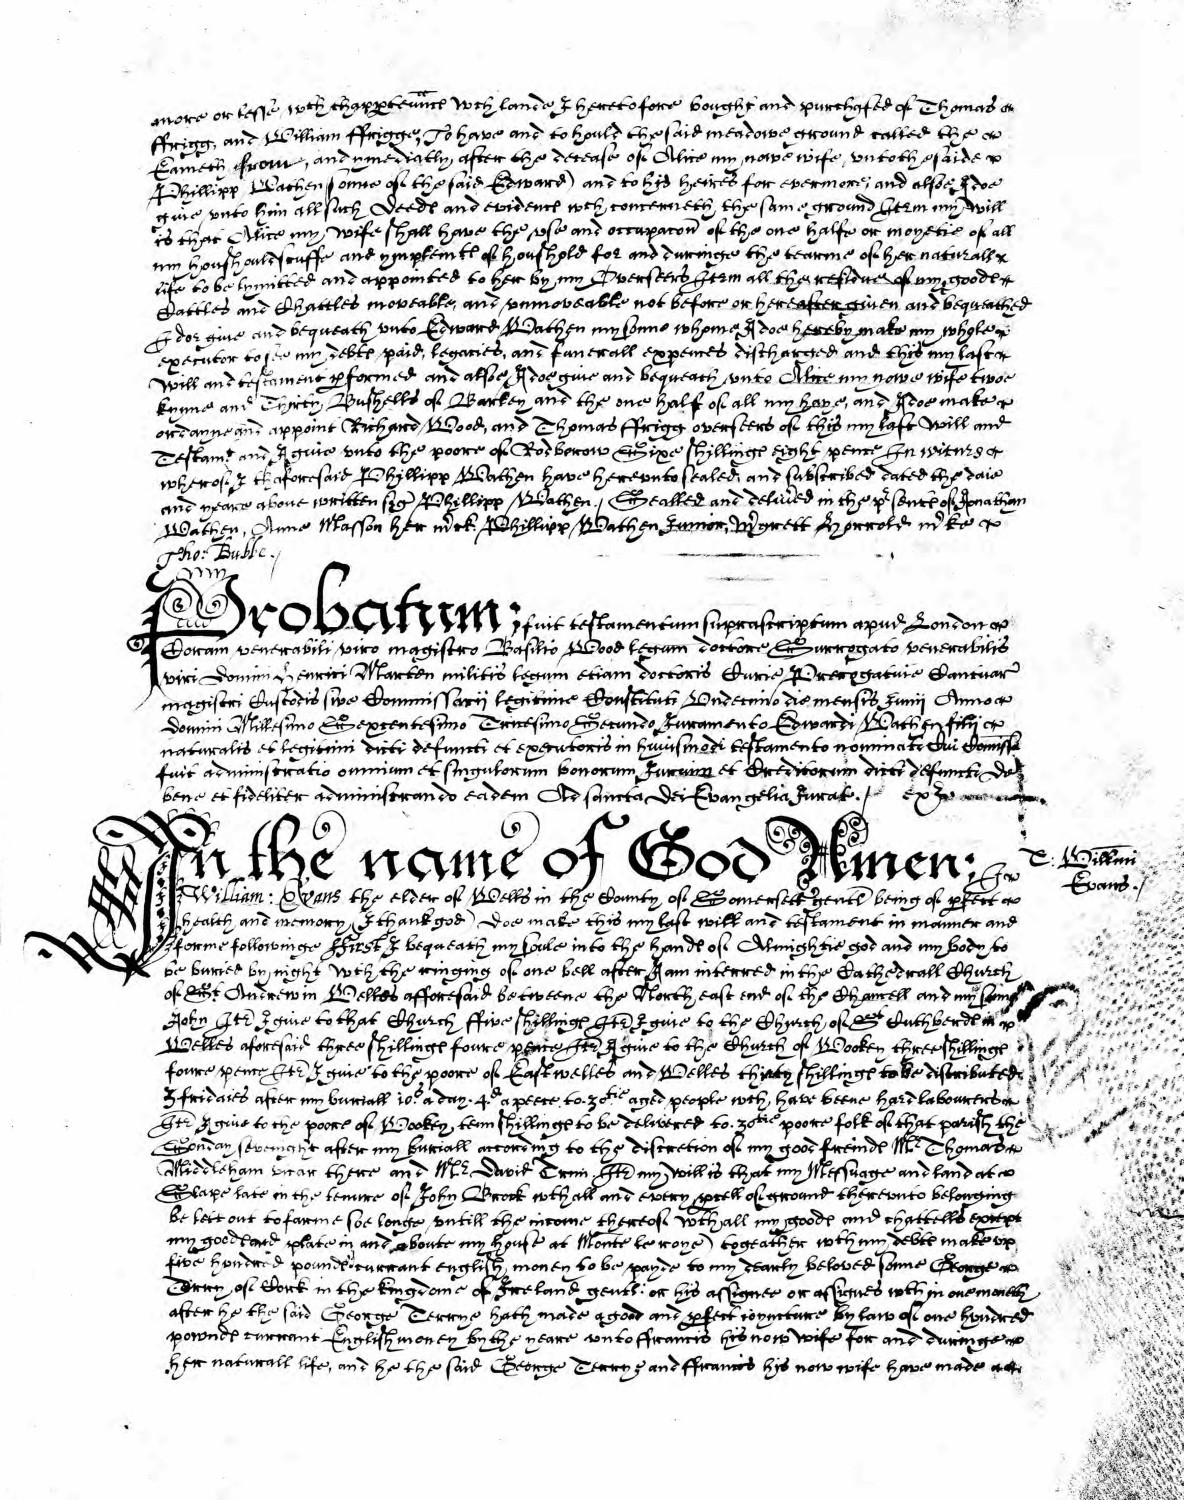 more or lesse, wth thappteunce wch lande I heretofore bought and purchased of Thomas
ffrigg, and William ffrigge, To have and to hould the said meadowe ground called the
from, and ymediatly, after the decease of Alice my nowe wife, unto the saide
Phillipp Wathen sonne of the said Edward) and to his heires for evermore, and alsoe I doe
give unto him all such Deede and evidence wch concerneth the same ground Itm my will
is that Alice my, wife shall have the use and occupacon of the one halfe or moyetie of all
my houshouldstuffe and ymplemte of houshold for and duringe the tearme of her naturall
life to be lymitted and appointed to her by my Overseers Itm all the residue of my goode
Cattles and Chattles moveable, and unmoveable not before or hereafter given and bequeathed
I doe give and bequeath unto Edward Wathen my sonne whome I doe hereby make my whole
executor to see my debte paid, legacies, and funerall expences discharged and this my last
will and testament pformed and alsoe I doe give and bequeath unto Alice my nowe wife twoe
kynne and Thirty Bushells of Barley and the one half of all my haye, and I doe make
ordayne and appoint Richard Wood, and Thomas ffrigg overseers of this my last will and
Testamt and I give unto the poore of Rodborow Sixe shillinge eight pence In witnes
whereof I thaforesaid Phillipp Wathen have hereunto sealed, and subscribed dated the daie
and yeare above written sig Phillipp Wathen./ Sealled and delived in the psence of Jonathan
Wathen, Anne Masson her mck, Phillipp Wathen Junior, Mgrett Horrold mke
Tho: Bubbe./
Probatum; fuit testamentum suprascriptum apud London
Coram venerabili viro magistro Basilio Wood legum doctore Surrogato venerabilis
viri Domini Henrici Marten militis legum etiam doctoris Curie Prerogative Cantuar
magistri Custodis sive Commissarij legitime Constituti Undecimo die mensis Junij Anno
domini Millesimo Sexcentesimo Tricesimo Secundo Juramento Edwardi Wathen filij
naturalis et legitimi dicti defuncti et executoris in huiusmodi testamento nominati Cui Comissa
fuit administratio omnium et singulorum bonorum Jurium et Creditorum dicti defuncti De
bene et fideliter administrando eadem Ad sancta Dei Evangelia Jurat./ ex
In the name of God Amen; I
T. Willmi
Evans./
William: Evans the elder of Wells in the County of Somersett gentl being of pfect
health and memory (I thank god) doe make this my last will and testament in manner and
forme followinge ffirst I bequeath my soule into the hande of Almightie god and my body to
be buried by night wth the ringing of one bell after I am interred in the Cathedrall Church
of St Andrew in Welles afforesaid betweene the North east end of the Chancell and my sonne
John Itm I give to that Church ffive shillinge Itm I give to the Church of St Cuthberde in
Welles aforesaid three shillinge foure pence Itm I give to the Church of Wookey three shillinge
foure pence Itm I give to the poore of Eastwelles and Welles thirty shillinge to be distributed
3 fridaies after my buriall 10s a day. 4d a peece to. 30tie aged people wch, have beene hard labourers
Itm I give to the poore of Wookey, tenn shillinge to be delivered to. 30tie poore folk of that parish the
Sonday sevenight after my buriall according to the discretion of my good freinde Mr Thomas
Middleham vicar there and Mr David Trim Itm my will is that my Messuage and land at
Slape late in the tenure of John Brock wth all and every pcell of ground thereunto belonging
be lett out to farme soe longe untill the income thereof wth all my goode and chattells except
my goode and plate in and aboute my house at Monte le roye) togeather wth my debte make up
five hundred pounde currant english money to be payde to my dearly beloved sonne George
Terry of Cork in the kingdome of Ireland gentl: or his assignee or assignes wth in one moneth
after he the said George Terrye hath made a good and pfect ioyncture by law of one hundred
pownde currant English money by the yeare unto ffrancis his now wife for and duringe
her naturall life, and he the said George Terrye and ffrancis his now wife have made a